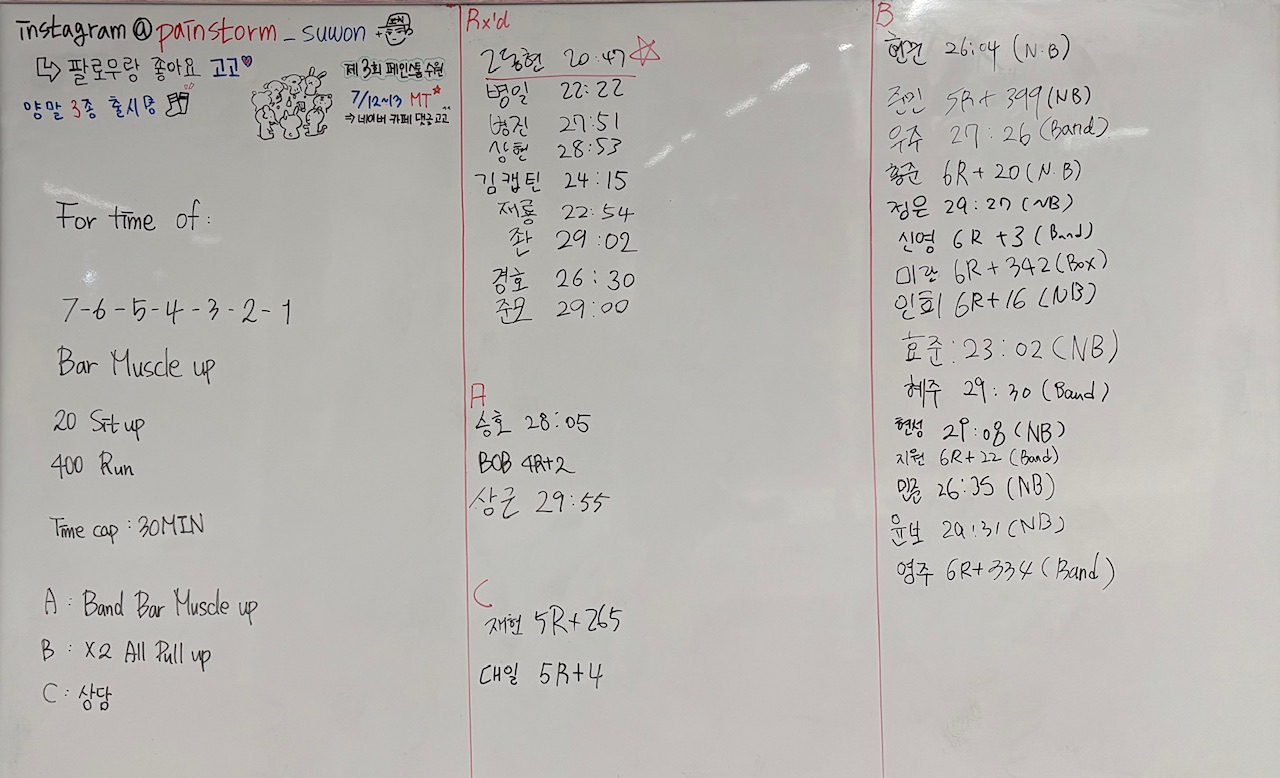 instagram@painstorm_suwon
↳ 팔로우랑 좋아요 고고♥
양말 3종 출시중
제3회 페인스톰 수원
7/12~13 MT
⇒ 네이버 카페 댓글고고
For time of:
7-6-5-4-3-2-1
Bar Muscle up
20 Sit up
400 Run
Time cap : 30MIN
A : Band Bar Muscle up
B : X2 All Pull up
C : 상담
Rx'd
20:47 ☆
병일 22:22
병진 27:51
상현 28:53
김캡틴 24:15
재룡 22:54
좐 29:02
경호 26:30
준모 29:00
A
승호 28:05
BOB 4R+2
상근 29:55
C
재현 5R+265
대일 5R+4
B
26:04 (N.B)
5R+399(NB)
우주 27:26(Band)
홍준 6R+20(N.B)
정은 29:27(NB)
신영 6R+3(Band)
미란 6R+342(Box)
인회 6R+16(NB)
효준:23:02(NB)
혜주 29:30(Band)
현성 29:08(NB)
지원 6R+22(Band)
민준 26:35(NB)
윤보 29:31(NB)
영주 6R+334(Band)